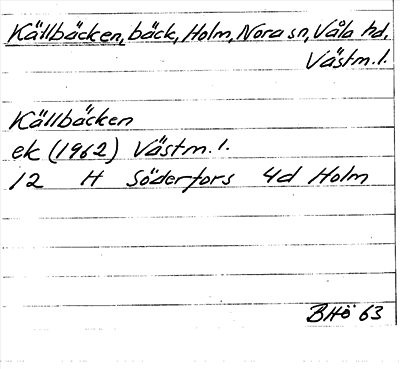 Källbäcken, bäck, Holm, Nora sn, Våla hd,
Västm. l.
Källbäcken
ek (1962) Västm. l.
12 H Söderfors 4d Holm
BHö 63